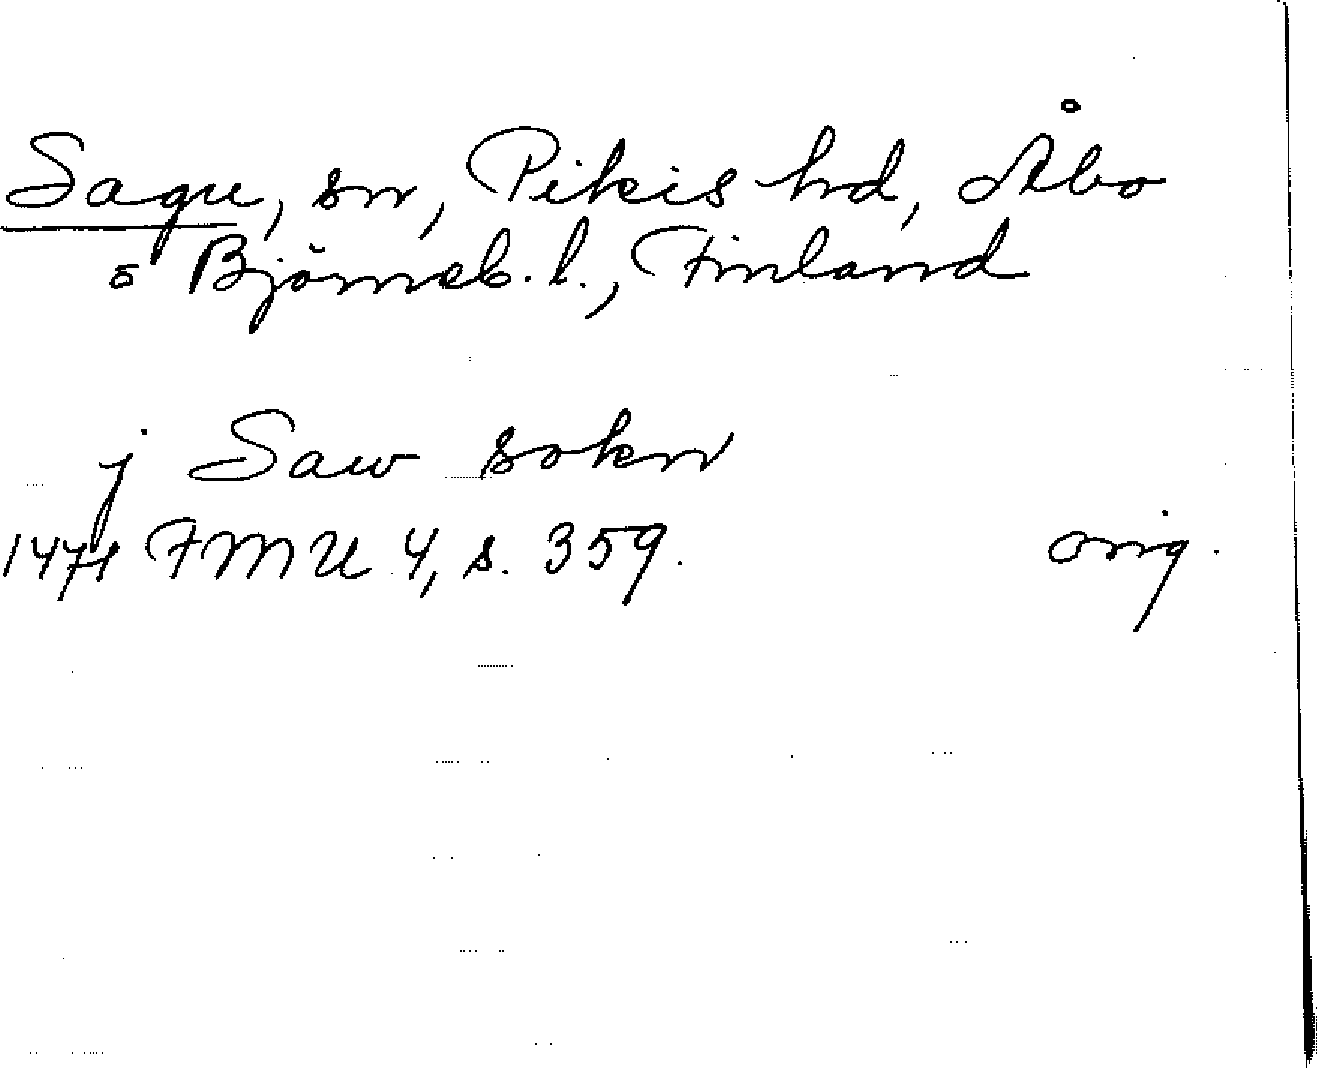 Sagu, sn, Pikis hd, Åbo
o Björneb. l., Finland
j Saw sokn
1474 FMU 4, s. 359. orig.